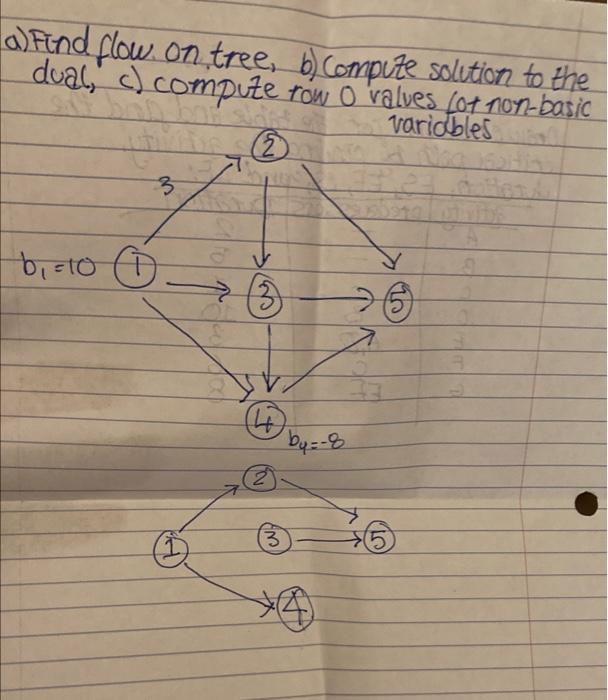 a) Find flow on tree, b) Compute solution to the
dual, c) compute row 0 values for non-basic
variables
2
3
b₁=10 1
3
5
4
b₄=-8
2
1
3
5
4